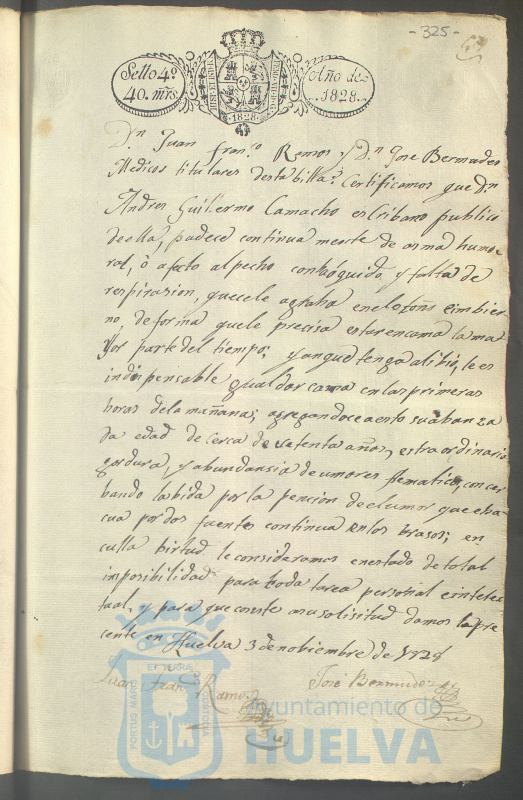 -325-
Sello 4º
40. mrs
HISP. ET IND. R.
1828
Año de
1828.
Dn Juan Franco Ramos y Dn Jose Bermudes
Medicos titulares desta billa. Certificamos que Dn
Andres Guillermo Camacho escribano publico
de ella, padece continua mente de asma humo-
ral, ò afecto al pecho con ... y falta de
respirasion, que cele agraba en el otoño e imbier
no, de forma que le precisa estar en cama la ma
yor parte del tiempo; y aunque tenga alibio, le es
indispensable gualdar cama en las primeras
horas de la mañana; agregandoce a esto su abanza
da edad de cerca de setenta años, estraordinaria
gordura, y abundansia de umores flematicos, concer
bando la bida por la pencion de elumor que eba
cua por dos fuentes continua en los brasos; en
culla birtud le consideramos en estado de total
imposibilidad para toda tarea personal e intelec
tual, y para que conste a su solisitud damos la pre
cente en Huelva 3 de nobiembre de 1828
Juan Franco Ramos
José Bermudez
PORTUS MARIS
ET TERRÆ
CUSTODIA
Ayuntamiento de
HUELVA